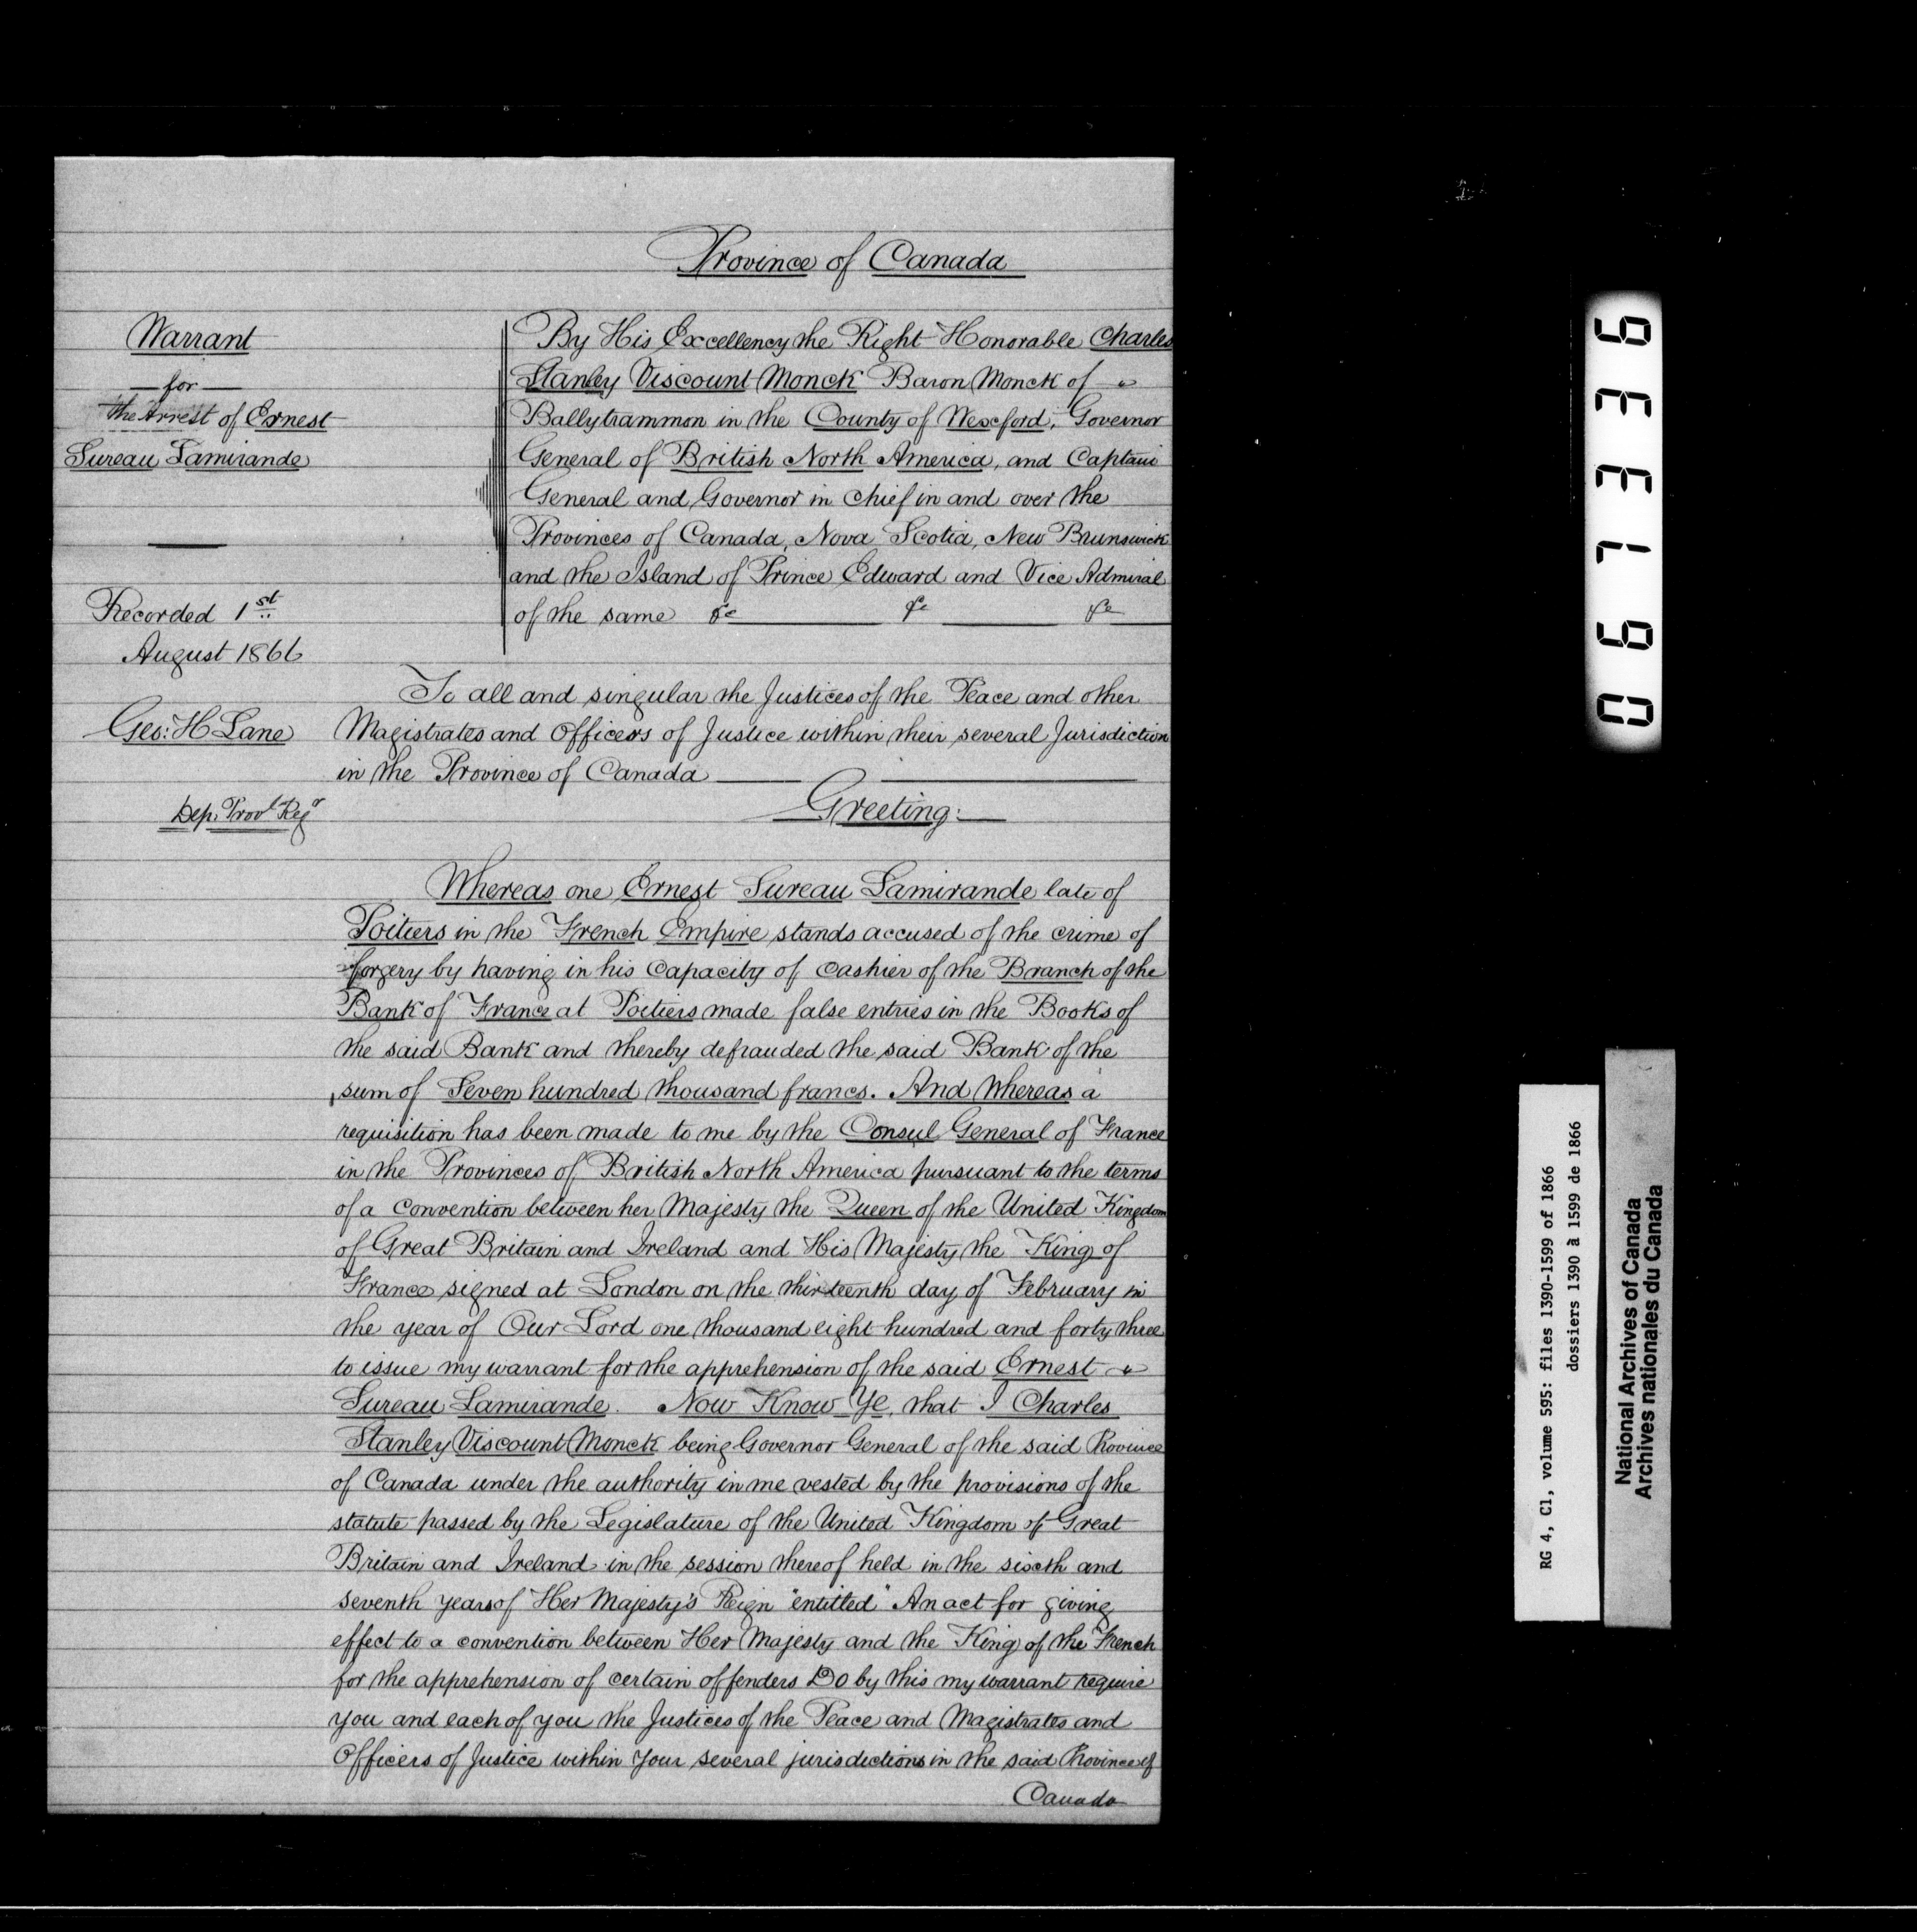 Province of Canada
Warrant
for
the Arrest of Ernest
Sureau Lamirande
Recorded 1st
August 1866
Geo: H Lane
Dep. Provl Regr
By His Excellency the Right Honorable Charles
Stanley Viscount Monck Baron Monck of
Ballytrammon in the County of Wexford, Governor
General of British North America, and Captain
General and Governor in Chief in and over the
Provinces of Canada, Nova Scotia, New Brunswick
and the Island of Prince Edward and Vice Admiral
of the same &c &c &c
To all and singular the Justices of the Peace and other
Magistrates and Officers of Justice within their several Jurisdiction
in the Province of Canada
Greeting:
Whereas one Ernest Sureau Lamirande late of
Poitiers in the French Empire stands accused of the crime of
forgery by having in his Capacity of Cashier of the Branch of the
Bank of France at Poitiers made false entries in the Books of
the said Bank and thereby defrauded the said Bank of the
sum of Seven hundred thousand francs. And Whereas a
requisition has been made to me by the Consul General of France
in the Provinces of British North America pursuant to the terms
of a Convention between her Majesty the Queen of the United Kingdom
of Great Britain and Ireland and His Majesty the King of
France signed at London on the thirteenth day of February in
the year of Our Lord one thousand eight hundred and forty three
to issue my warrant for the apprehension of the said Ernest
Sureau Lamirande. Now Know Ye, that I Charles
Stanley Viscount Monck being Governor General of the said Province
of Canada under the authority in me vested by the provisions of the
statute passed by the Legislature of the United Kingdom of Great
Britain and Ireland in the session thereof held in the sixth and
seventh years of Her Majesty's Reign "entitled" An act for giving
effect to a convention between Her Majesty and the King of the French
for the apprehension of certain offenders Do by this my warrant require
you and each of you the Justices of the Peace and Magistrates and
Officers of Justice within Your several jurisdictions in the said Province of
Canada
067336
RG 4, C1, volume 595: files 1390-1599 of 1866
dossiers 1390 à 1599 de 1866
National Archives of Canada
Archives nationales du Canada